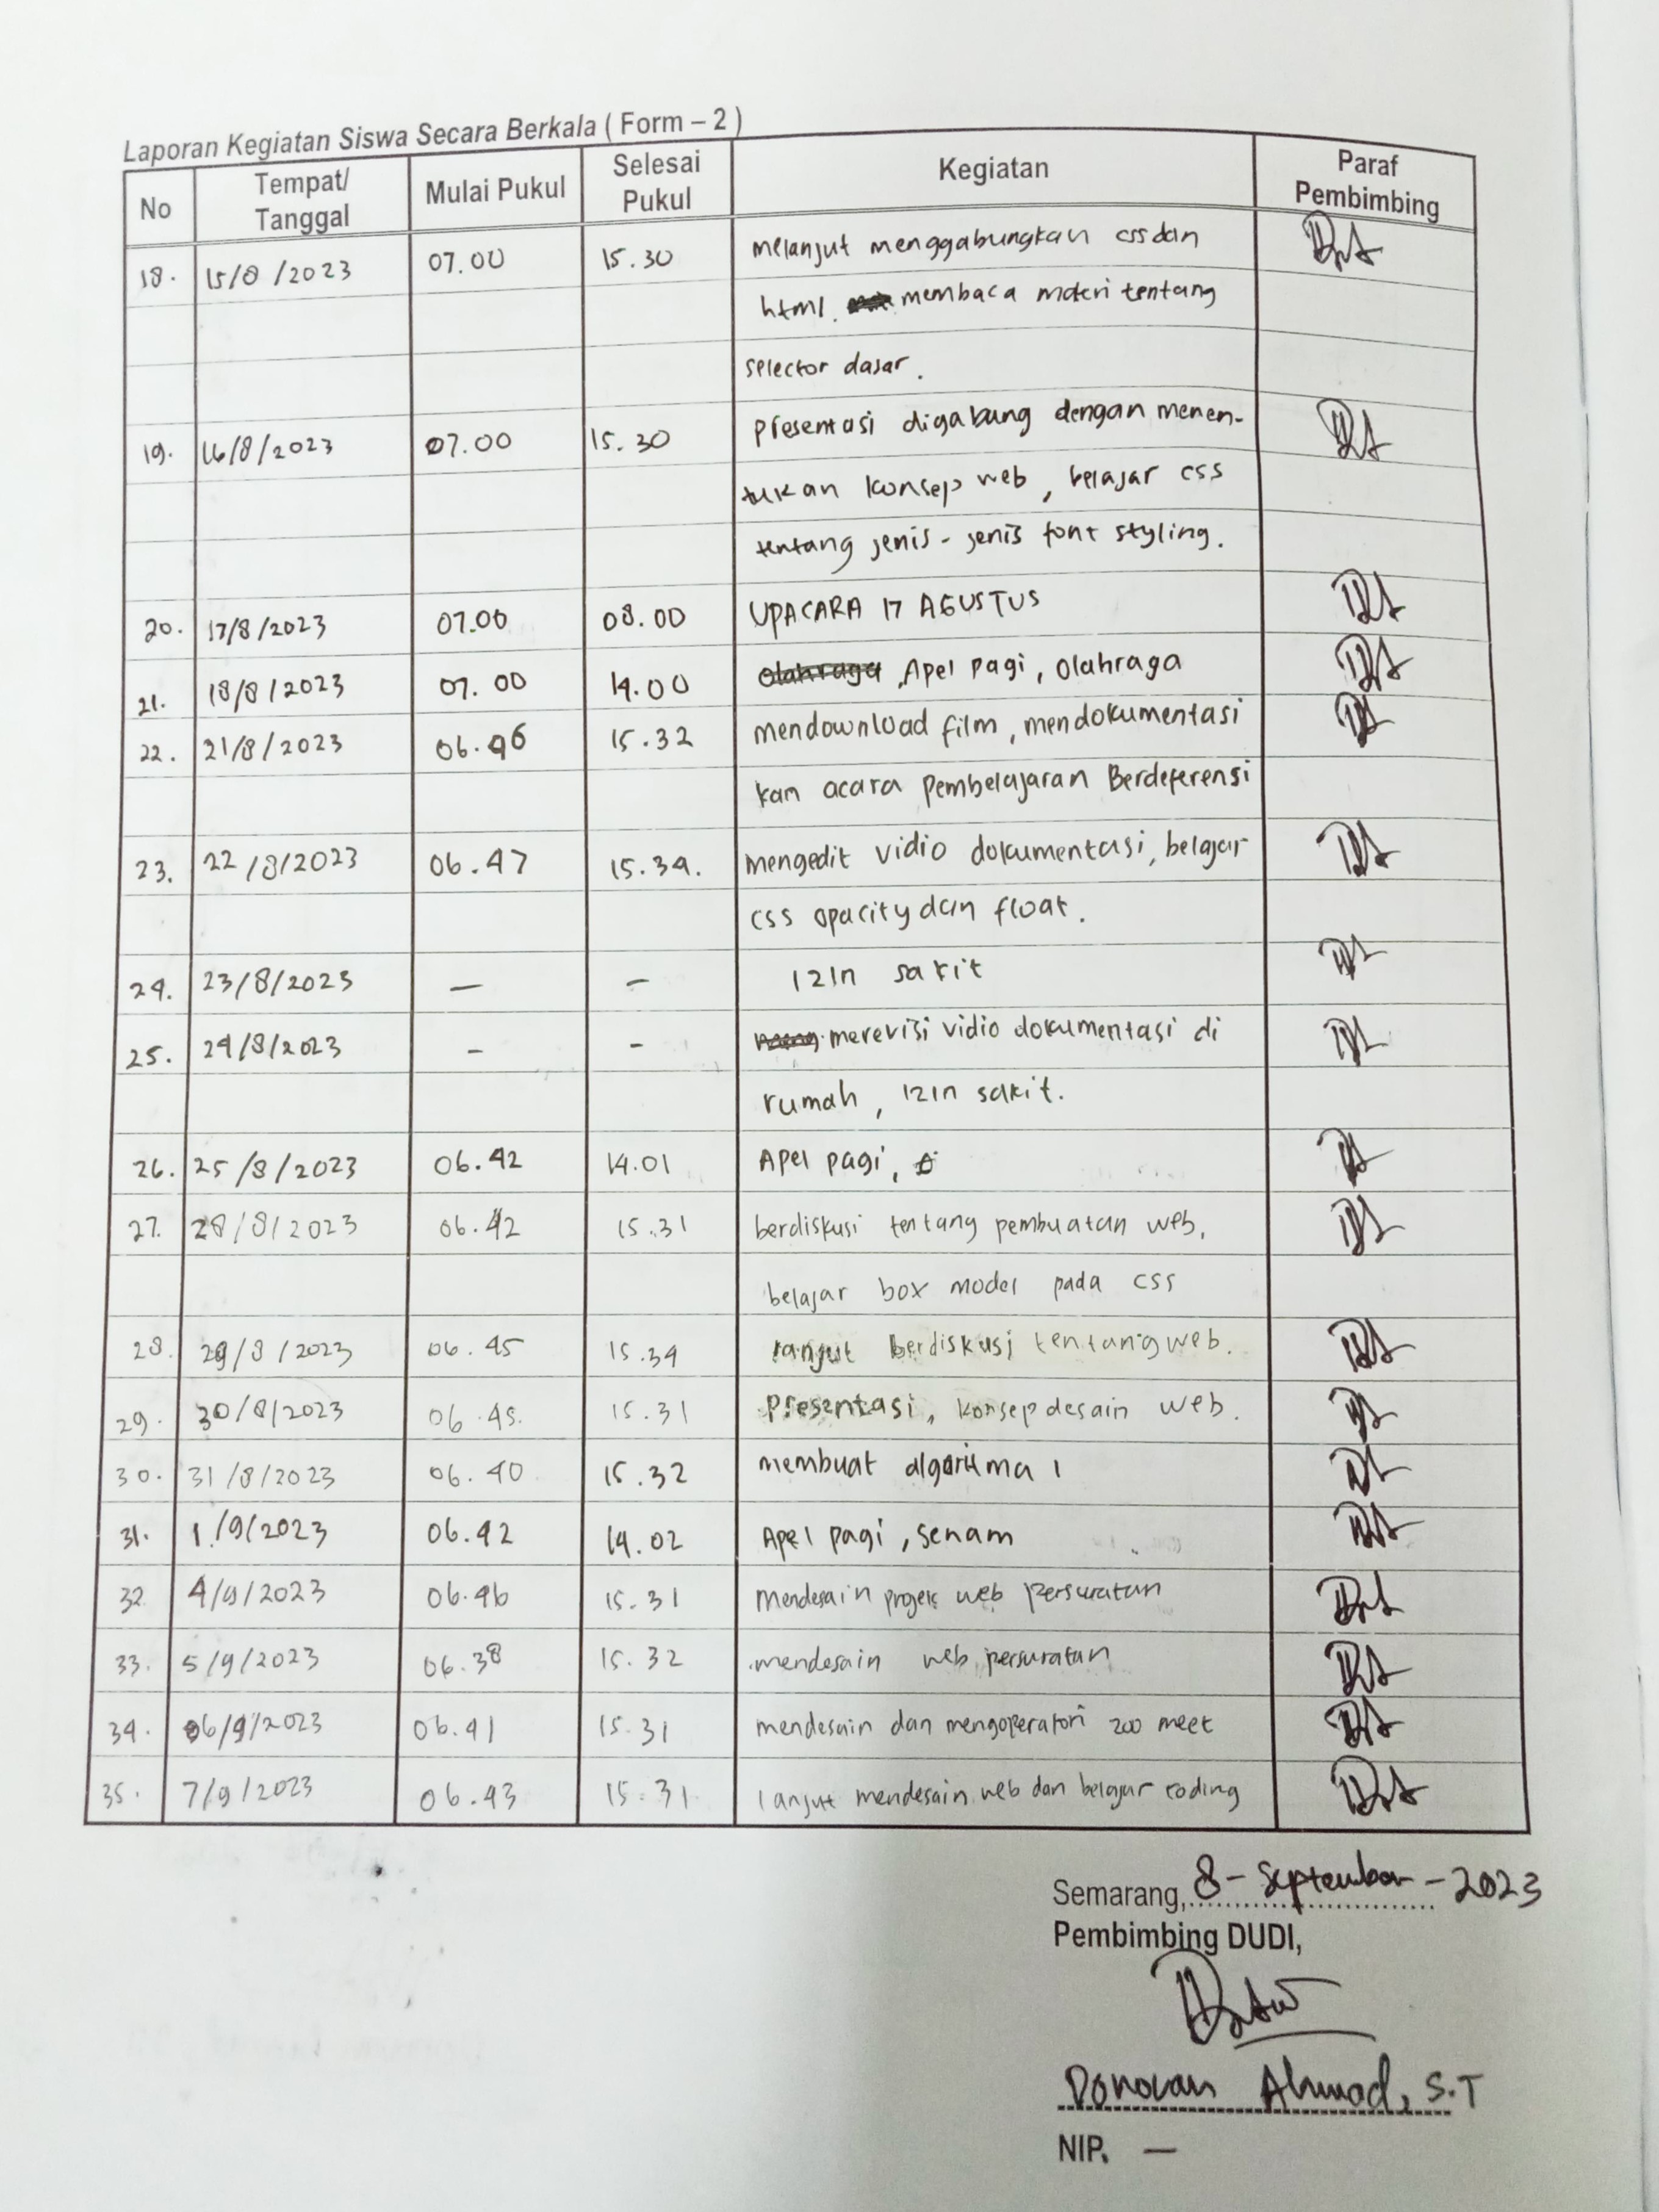 Laporan Kegiatan Siswa Secara Berkala ( Form – 2 )
No Tempat/ Tanggal Mulai Pukul Selesai Pukul Kegiatan Paraf Pembimbing
18. 15/8/2023 07.00 15.30 melanjut menggabungkan css dan
html. membaca materi tentang
selector dasar.
19. 16/8/2023 07.00 15.30 presentasi digabung dengan menen-
tukan konsep web, belajar css
tentang jenis-jenis font styling.
20. 17/8/2023 07.00 08.00 UPACARA 17 AGUSTUS
21. 18/8/2023 07.00 14.00 Olahraga Apel pagi, Olahraga
22. 21/8/2023 06.46 15.32 mendownload film, mendokumentasi
kan acara pembelajaran Berdeferensi
23. 22/8/2023 06.47 15.34. mengedit vidio dokumentasi, belajar
css opacity dan float.
24. 23/8/2023 – – izin sakit
25. 24/8/2023 - - merevisi vidio dokumentasi di
rumah, izin sakit.
26. 25/8/2023 06.42 14.01 Apel pagi,
27. 28/8/2023 06.42 15.31 berdiskusi tentang pembuatan web,
belajar box model pada css
28. 29/8/2023 06.45 15.34 lanjut berdiskusi tentang web.
29. 30/8/2023 06.45. 15.31 presentasi, konsep desain web.
30. 31/8/2023 06.40 15.32 membuat algoritma 1
31. 1/9/2023 06.42 14.02 Apel pagi, senam
32 4/9/2023 06.46 15.31 mendesain projek web persuratan
33. 5/9/2023 06.38 15.32 mendesain web persuratan
34. 06/9/2023 06.41 15.31 mendesain dan mengoperatori zoo meet
35. 7/9/2023 06.43 15.31 lanjut mendesain web dan belajar coding
Semarang, 8 - September - 2023
Pembimbing DUDI,
Donovan Ahmad, S.T
NIP. —